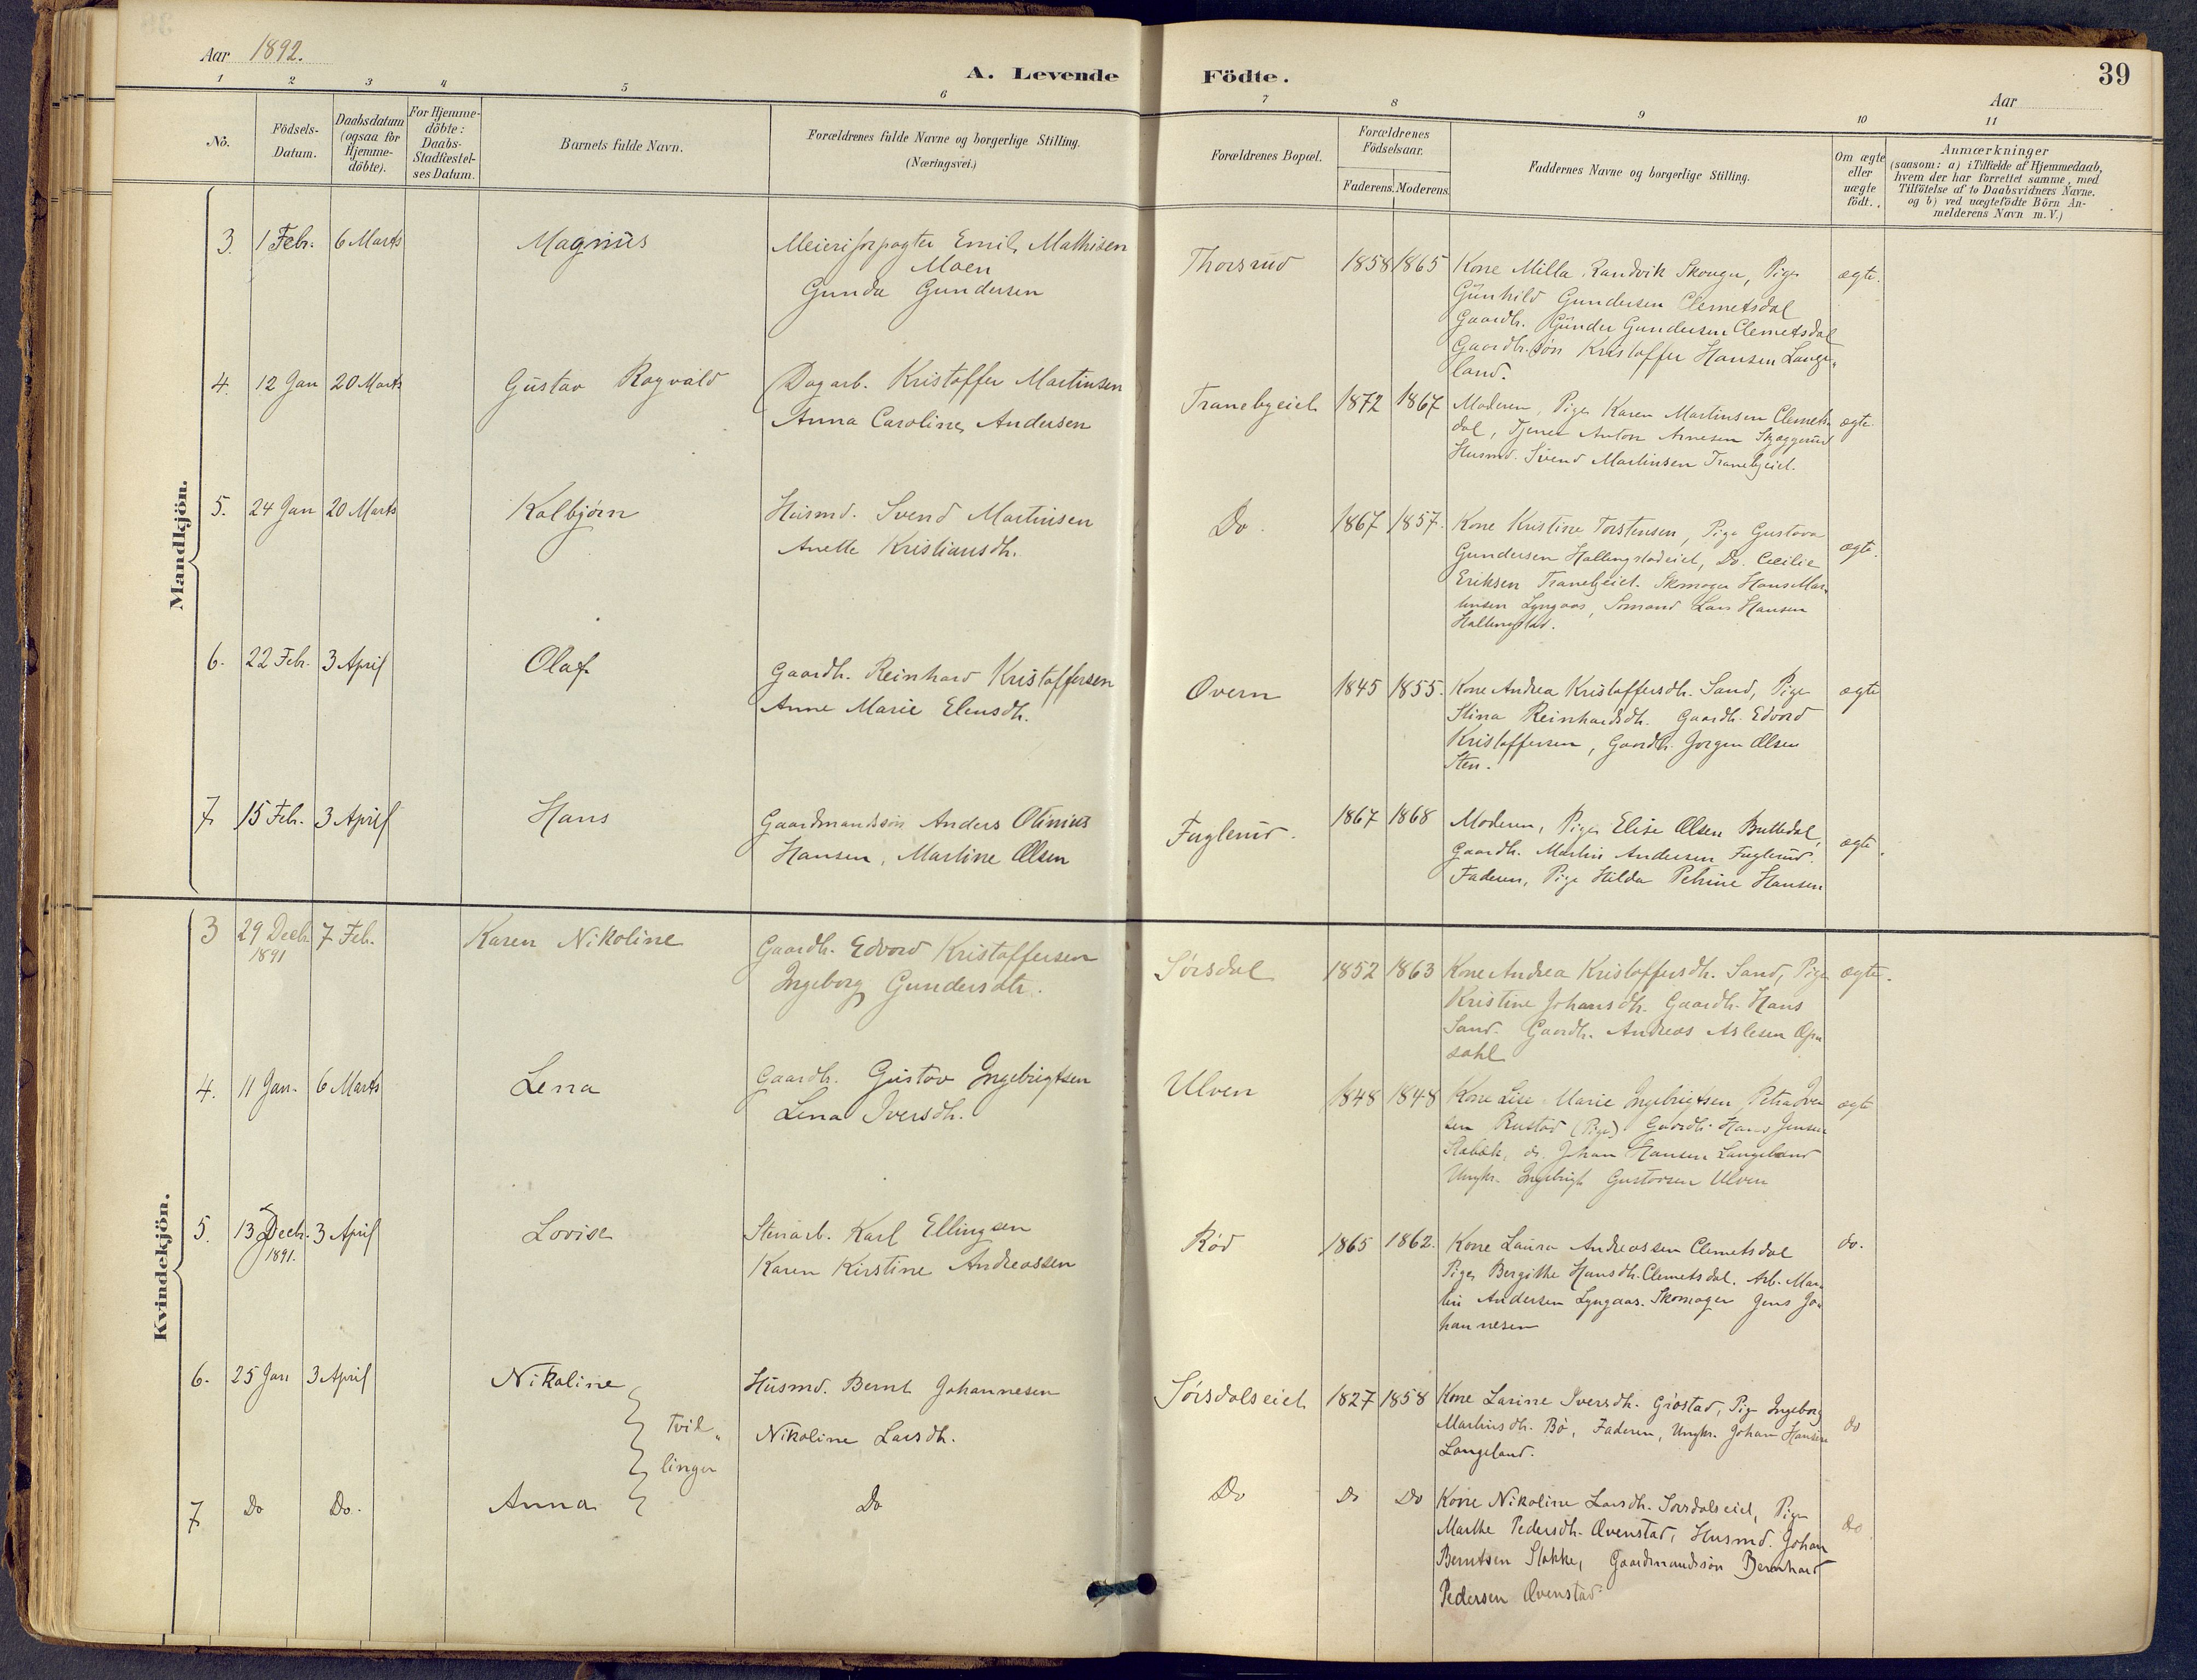 Aar 1892.
A. Levende Födte.
39
Aar
1 2 3 4 5 6 7 8 9 10 11
No.
Födsels-
Datum.
Daabsdatum
(ogsaa for
Hjemme-
döbte).
For Hjemme-
döbte:
Daabs-
Stadfæstel-
ses Datum.
Barnets fulde Navn.
Forældrenes fulde Navne og borgerlige Stilling.
(Næringsvei.)
Forældrenes Bopæl.
Forældrenes
Födselsaar.
Faderens. Moderens.
Faddernes Navne og borgerlige Stilling.
Om ægte
eller
uægte
födt.
Anmærkninger
(saasom: a) i Tilfælde af Hjemmedaab,
hvem der har forrettet samme, med
Tilföielse af to Daabsvidners Navne.
og b) ved uægtefödte Börn An-
melderens Navn m. V.)
Mandkjön.
3. 1 Febr. 6 Marts Magnus
Meieriforpagter Emil Mathisen
Moen
Gunda Gundersen
Thorsrud 1858 1865
Kone Milla Randvik Skouger, Pige
Gunhild Gundersen Clemetsdal
Gaardb. Gunder Gundersen Clemetsdal
Gaardbr. søn Kristoffer Hansen Lange-
land.
ægte.
4. 12 Jan 20 Marts Gustav Ragvald
Dagarb. Kristoffer Martinsen
Anna Caroline Andersen
Tranebyeiet 1872 1867
Moderen, Pige Karen Martinsen Clemets-
dal, Tjener Anton Arnesen Skjeggerud
Husmd. Svend Martinsen Tranebyeiet.
ægte.
5. 24 Jan 20 Marts Kolbjørn
Husmd. Svend Martinsen
Anette Kristiansdtr.
Do. 1867 1857.
Kone Kristine Torstensen, Pige Gustava
Gundersen Hallingstadeiet, Do. Cecilie
Eriksen Tranebyeiet. Skomager Hans Mar-
tinsen Lyngaas, Sømand Lars Hansen
Hallingstad.
ægte.
6. 22 Febr. 3 April Olaf
Gaardb. Reinhard Kristoffersen
Anne Marie Elensdtr.
Overn 1845 1855.
Kone Andrea Kristoffersdtr. Sand, Pige
Stina Reinhardsdtr. Gaardb. Edvard
Kristoffersen, Gaardb. Jørgen Olsen
Sten.
ægte
7. 15 Febr. 3 April Hans
Gaardmandssøn Anders Olinius
Hansen, Martine Olsen
Fuglerud. 1867 1868
Moderen, Pige Elise Olsen Bulledal,
Gaardb. Martin Andersen Fuglerud.
Faderen, Pige Hilda Petrine Hansen
ægte.
Kvindekjön.
3 29 Decbr. 7 Feb. Karen Nikoline
1891
Gaardb. Edvard Kristoffersen
Ingeborg Gundersdtr.
Sørsdal 1852 1863
Kone Andrea Kristoffersdtr. Sand, Pige
Kristine Johansdtr. Gaardb. Hans
Sand. Gaardb. Andreas Aslesen Op-
sahl
ægte.
4. 11 Jan. 6 Marts Lena
Gaardb. Gustav Ingebrigtsen
Lena Iversdtr.
Ulven 1848 1848
Kone Lise Marie Ingebrigtsen, Petra Iver-
sen Rustad (Pige) Gaardb. Hans Jensen
Stabæk, do. Johan Hansen Langeland
Ungkr. Ingebrigt Gustavsen Ulven
ægte
5. 13 Decbr. 3 April Lovise
1891.
Stenarb. Karl Ellingsen
Karen Kirstine Andreassen
Rød 1865 1862.
Kone Laura Andreassen Clemetsdal
Pige Bergithe Hansdtr. Clemetsdal. Arb. Mar-
tin Andersen Lyngaas. Skomager Jens Jo-
hannesen
do.
6. 25 Jan 3 April Nikoline
Tvil-
linger
Husmd. Bernt Johannesen
Nikoline Larsdtr.
Sørsdalseiet 1827 1858
Kone Larine Iversdtr. Grøstad, Pige Ingeborg
Martinsdtr. Bø, Faderen, Ungkr. Johan Hansen
Langeland.
do
7 Do Do. Anna Do
Do Do Do
Kone Nikoline Larsdtr. Sørsdalseiet, Pige
Marthe Pedersdtr. Ovenstad, Husmd. Johan
Berntsen Slakke, Gaardmandssøn Bernhard
Pedersen Ovenstad.
do.